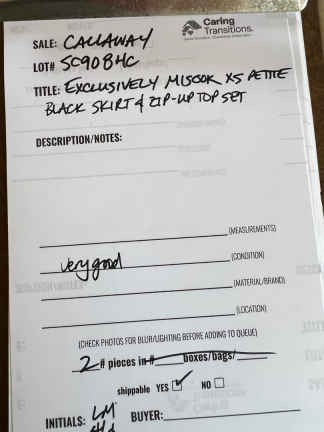 Caring
Transitions.
SALE: CALLAWAY
LOT# SC90BHC
TITLE: EXCLUSIVELY MISOOK XS PETITE
BLACK SKIRT & ZIP-UP TOP SET
DESCRIPTION/NOTES:
(MEASUREMENTS)
very good (CONDITION)
(MATERIAL/BRAND)
(LOCATION)
(CHECK PHOTOS FOR BLUR/LIGHTING BEFORE ADDING TO QUEUE)
2 # pieces in # boxes/bags/
shippable YES ☑ NO ☐
INITIALS: LM BUYER: